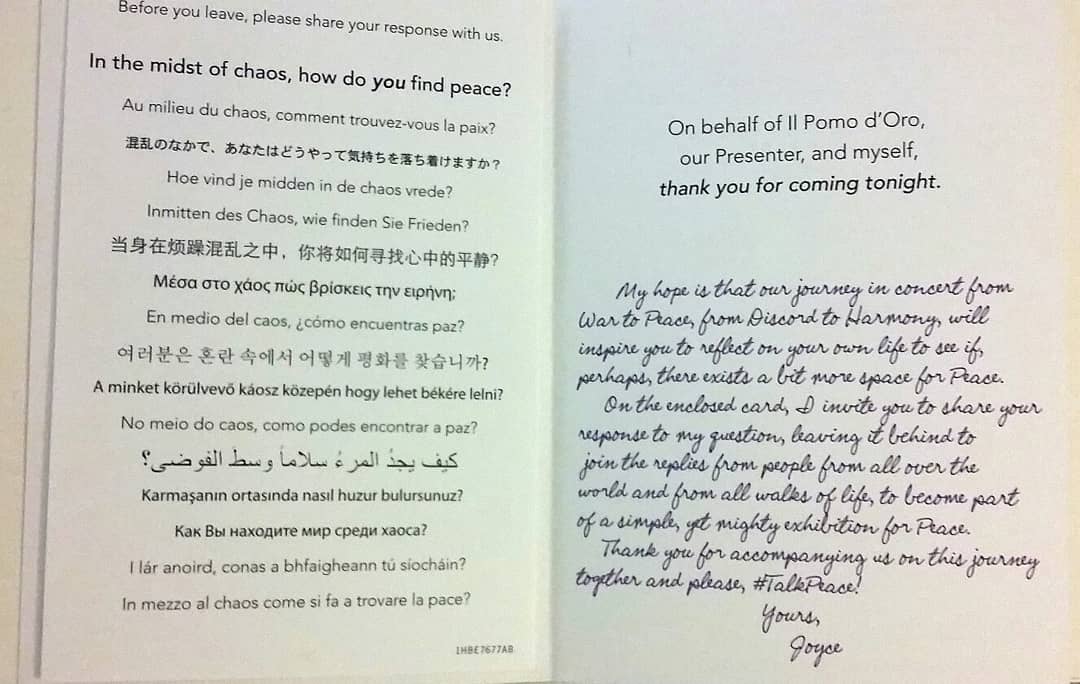 Before you leave, please share your response with us.
In the midst of chaos, how do you find peace?
Au milieu du chaos, comment trouvez-vous la paix?
混乱のなかで、あなたはどうやって気持ちを落ち着けますか？
Hoe vind je midden in de chaos vrede?
Inmitten des Chaos, wie finden Sie Frieden?
当身在烦躁混乱之中，你将如何寻找心中的平静?
Μέσα στο χάος πώς βρίσκεις την ειρήνη;
En medio del caos, ¿cómo encuentras paz?
여러분은 혼란 속에서 어떻게 평화를 찾습니까?
A minket körülvevő káosz közepén hogy lehet békére lelni?
No meio do caos, como podes encontrar a paz?
كيف يجدُ المرءُ سلاماً وسطَ الفوضى؟
Karmaşanın ortasında nasıl huzur bulursunuz?
Как Вы находите мир среди хаоса?
I lár anoird, conas a bhfaigheann tú síocháin?
In mezzo al chaos come si fa a trovare la pace?
1HBE7677AB
On behalf of Il Pomo d'Oro,
our Presenter, and myself,
thank you for coming tonight.
My hope is that our journey in concert from
War to Peace, from Discord to Harmony, will
inspire you to reflect on your own life to see if,
perhaps, there exists a bit more space for Peace.
On the enclosed card, I invite you to share your
response to my question, leaving it behind to
join the replies from people from all over the
world and from all walks of life, to become part
of a simple, yet mighty exhibition for Peace.
Thank you for accompanying us on this journey
together and please, #TalkPeace!
Yours,
Joyce